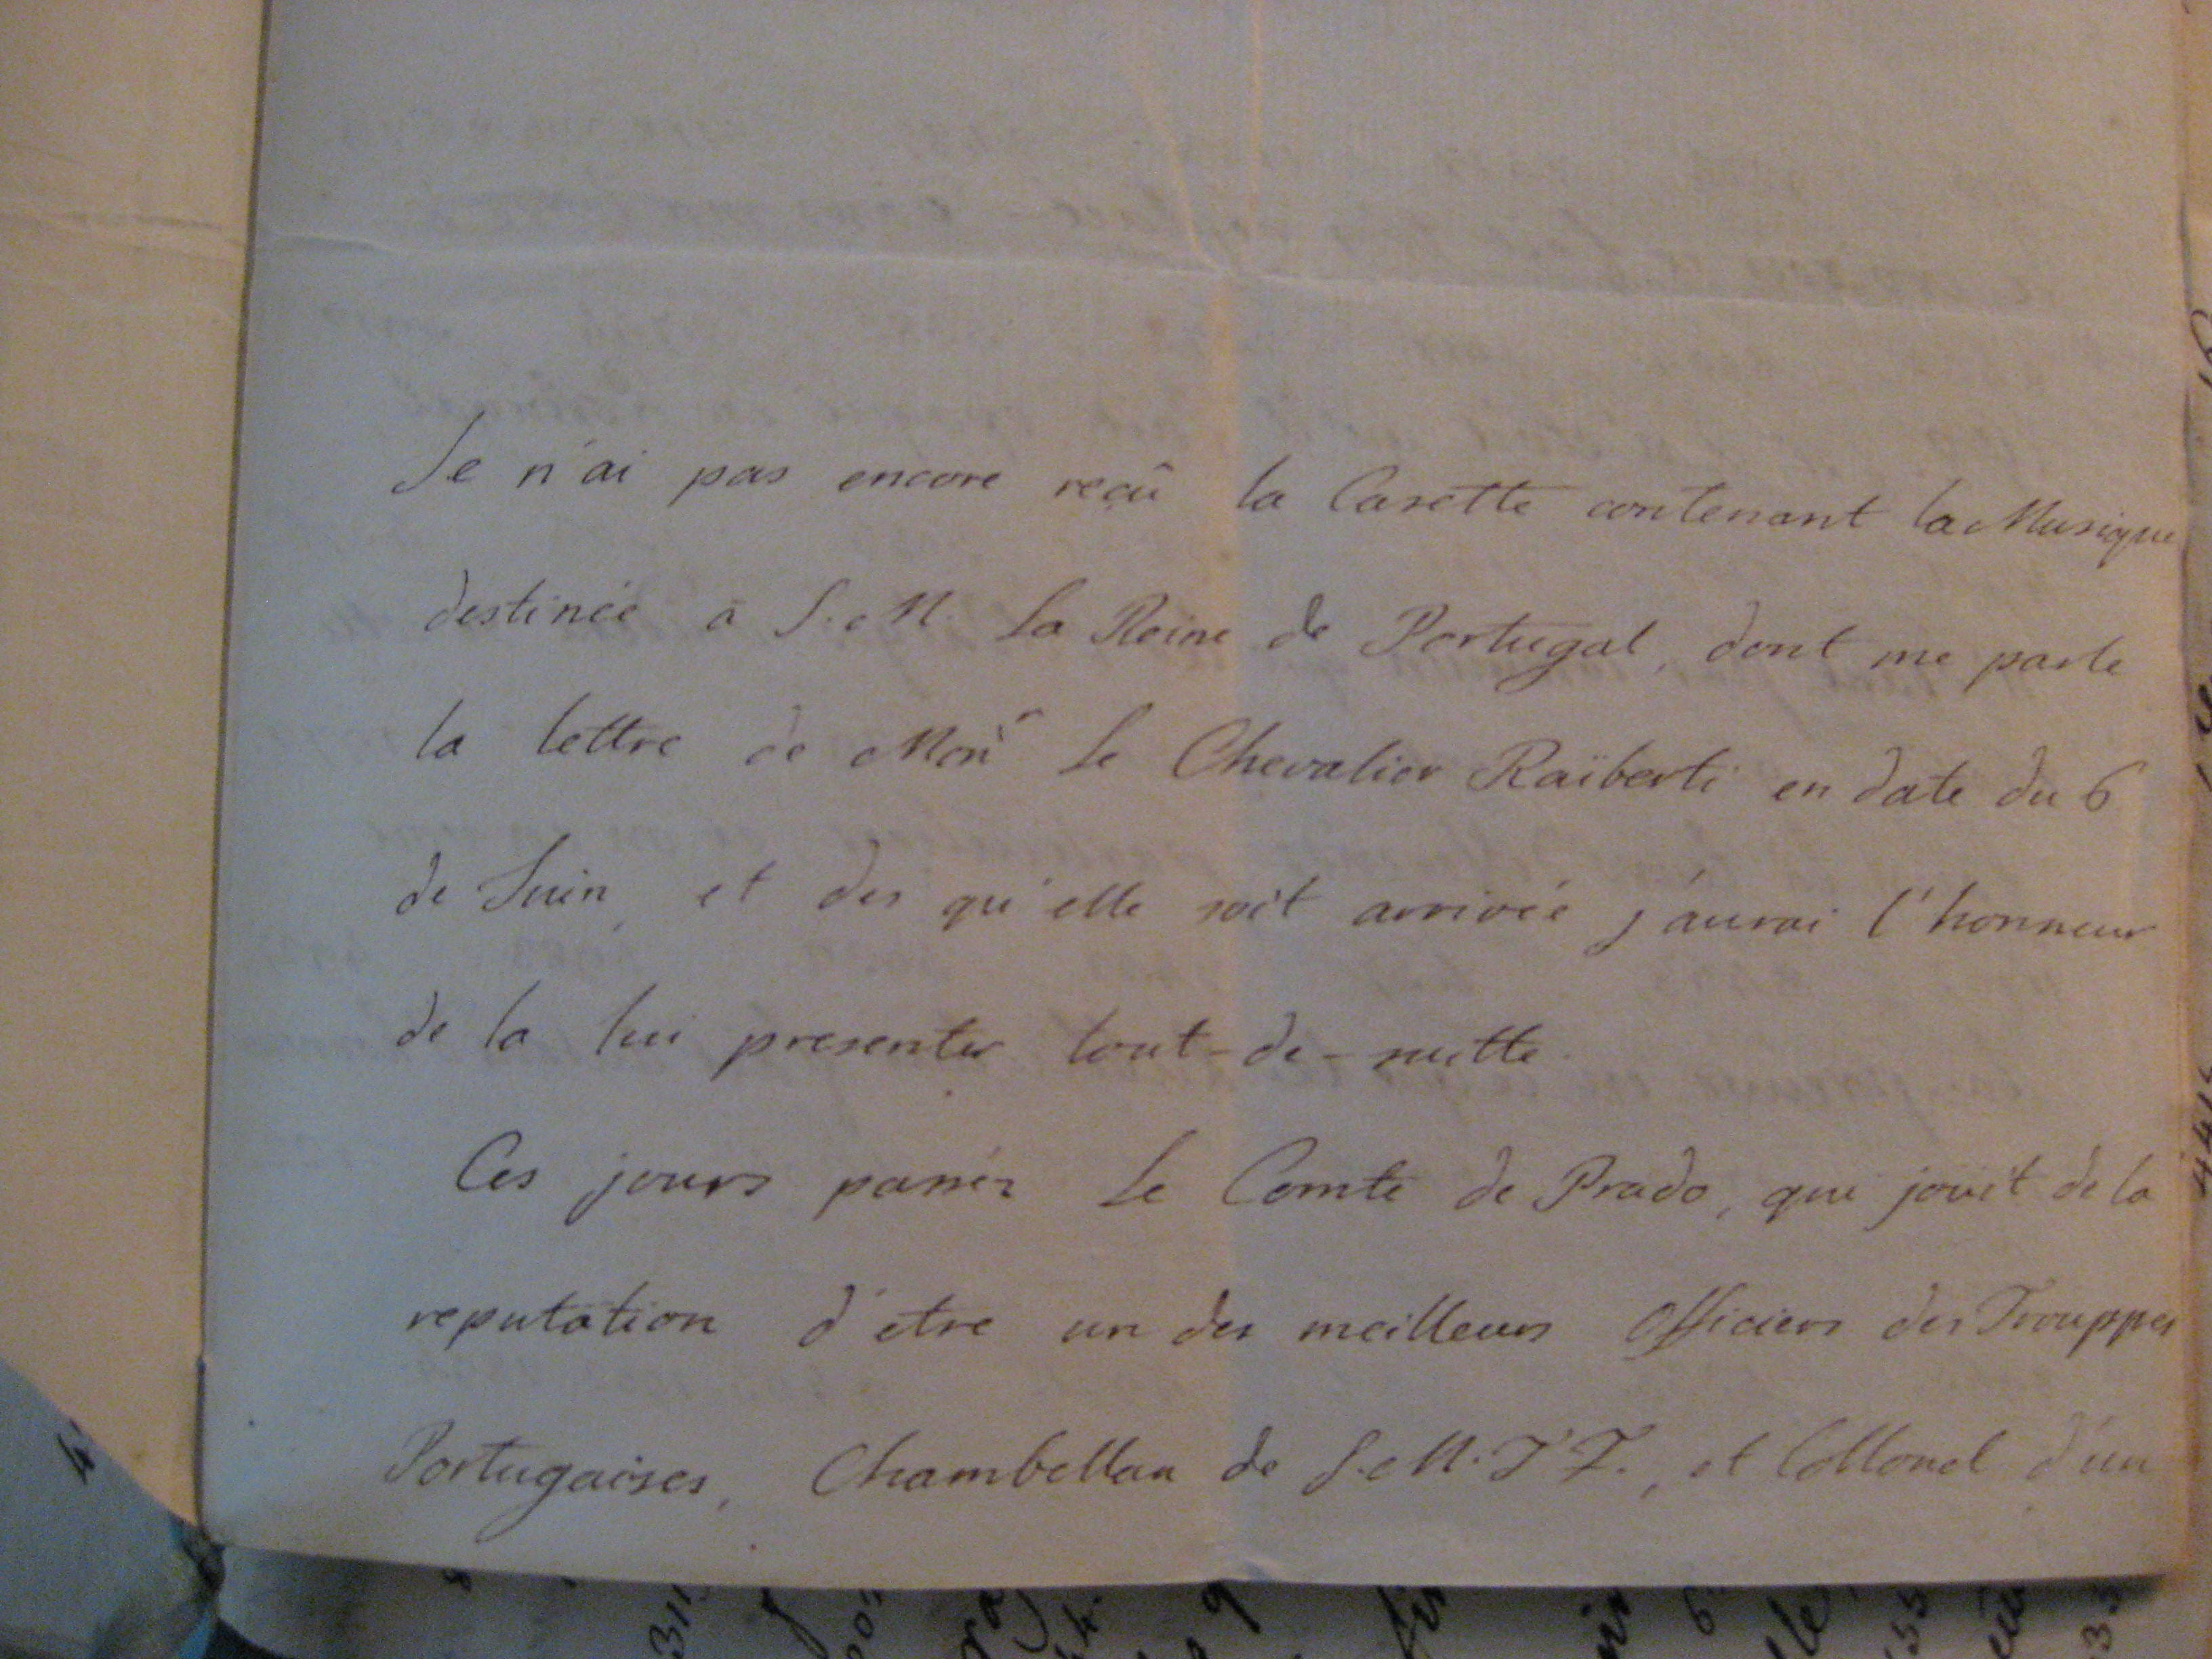 Je n'ai pas encore reçû la Casette contenant la Musique
destinée a S. M. La Reine de Portugal, dont me parle
la lettre de Mon.r Le Chevalier Raïberti en date du 6
de Juin, et des qu'elle soit arrivée j'aurai l'honneur
de la lui presenter tout-de-suitte.
Ces jours passés Le Comte de Prado, qui jouit de la
reputation d'etre un des meilleurs Officiers des Trouppes
Portugaises, Chambellan de S. M. T. F., et Collonel d'un